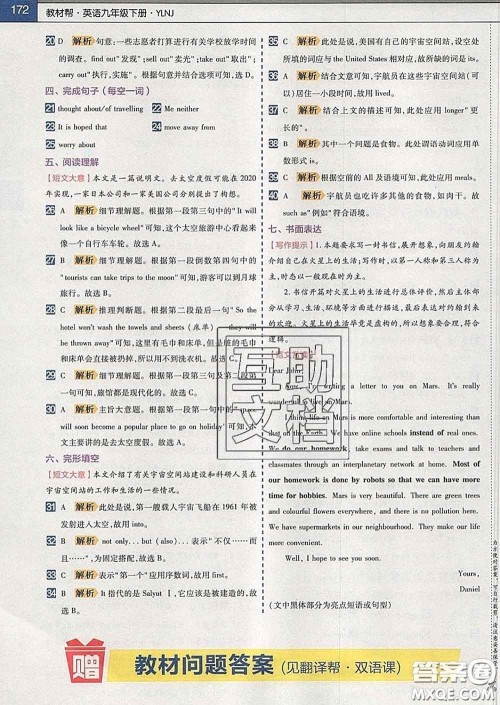 172 教材帮·英语九年级下册·YLNJ
20 D 解析 句意：一些志愿者打算进行有关学校放学时间
的调查。find out“发现”；sell out“卖光”；take out“取出”；
carry out“执行，实施”。根据句意并结合选项可知，选D。
四、完成句子（每空一词）
21 thought about/of travelling 22 Me neither
23 It is hoped that 24 move away from
25 worry about
五、阅读理解
【短文大意】本文是一篇说明文。去太空度假可能在2020
年实现，一家日本公司和一家美国公司分别提出了构想。
26 A 解析 细节理解题。根据第一段第三句中的“It will
look like a bicycle wheel”可知，这个太空旅游中心看起来
像一个自行车车轮。故选A。
27 B 解析 细节理解题。根据第一段倒数第四句中的
“tourists can take trips to the moon”可知，游客可以到月球
旅行。故选B。
28 C 解析 推理判断题。根据第二段最后一句“So the
hotel won't wash the towels and sheets（床单）—they will
be thrown away”可知，这里有毛巾和床单，但是脏的毛巾
和床单都会被扔掉，所以用不到洗衣机。故选C。
29 B 解析 细节理解题。根据第一段第二句及第二段第
一句可知，旅馆都是现代化的。故选B。
30 B 解析 主旨大意题。根据第一段第一句可知，本
文主要讲的是去太空度假。故选B。
六、完形填空
【短文大意】本文介绍了有关宇宙空间站建设和科研人员在
宇宙空间站的工作和生活的一些情况。
31 A 解析 此处是说，第一艘载人宇宙飞船在1961年被
发射进入太空，故用into。
32 B 解析 not only...but (also)...表示“不仅……而
且……”，为固定搭配，故选B。
33 C 解析 表示“第一个”应用序数词，故用first。
34 B 解析 It指代的是Salyut Ⅰ，它应该是被建造的，故
选B。
35 C 解析 此处是说，美国有自己的宇宙空间站，设空处
所填的词应与the United States相对应，故所缺的词是its。
36 A 解析 结合文意可知，宇航员在这些宇宙空间站（可
以）居住一小段时间，故用lived。
37 C 解析 结合上文的描述可知，此处应用longer“更长
的”。
38 B 解析 其中一个问题是食物。此处谓语动词应用单
数形式is。
39 C 解析 根据空前的All及语境可知，此处应用was。
40 A 解析 宇航员也吃许多其他的食物，如肉和干果。故
such as“例如”符合语境。
七、书面表达
【写作提示】1.本题要写一封书信，展开想象，向朋友约翰
介绍自己在火星上的生活，所以人称以第一人称和第三人称为
主。
2.书信开篇对火星上的生活进行总体评价，然后主体部
分从学习、生活、环境等方面进行描述，最后表达对约翰到来
的欢迎。火星上的生活毕竟是虚构的，所以要合理想象，符合
逻辑。
Dear John,
Now, I'm writing a letter to you on Mars. It's
wonderful.
I think, life on Mars is more interesting and exciting than
that on the Earth. We have online schools instead of real ones.
We do our homework, take exams and talk to teachers and
classmates through an interplanetary network at home. Most of
our homework is done by robots so that we can have more time
for hobbies. Mars is very beautiful. There are green trees
and colourful flowers everywhere, and there is no pollution.
We have supermarkets in our neighbourhood. They make our life
more convenient.
Well, I hope to see you soon.
Yours,
Daniel
（文中黑体部分为亮点短语或句型）
互助
文档
赠 教材问题答案（见翻译帮·双语课）
答案圈
MXQE.COM